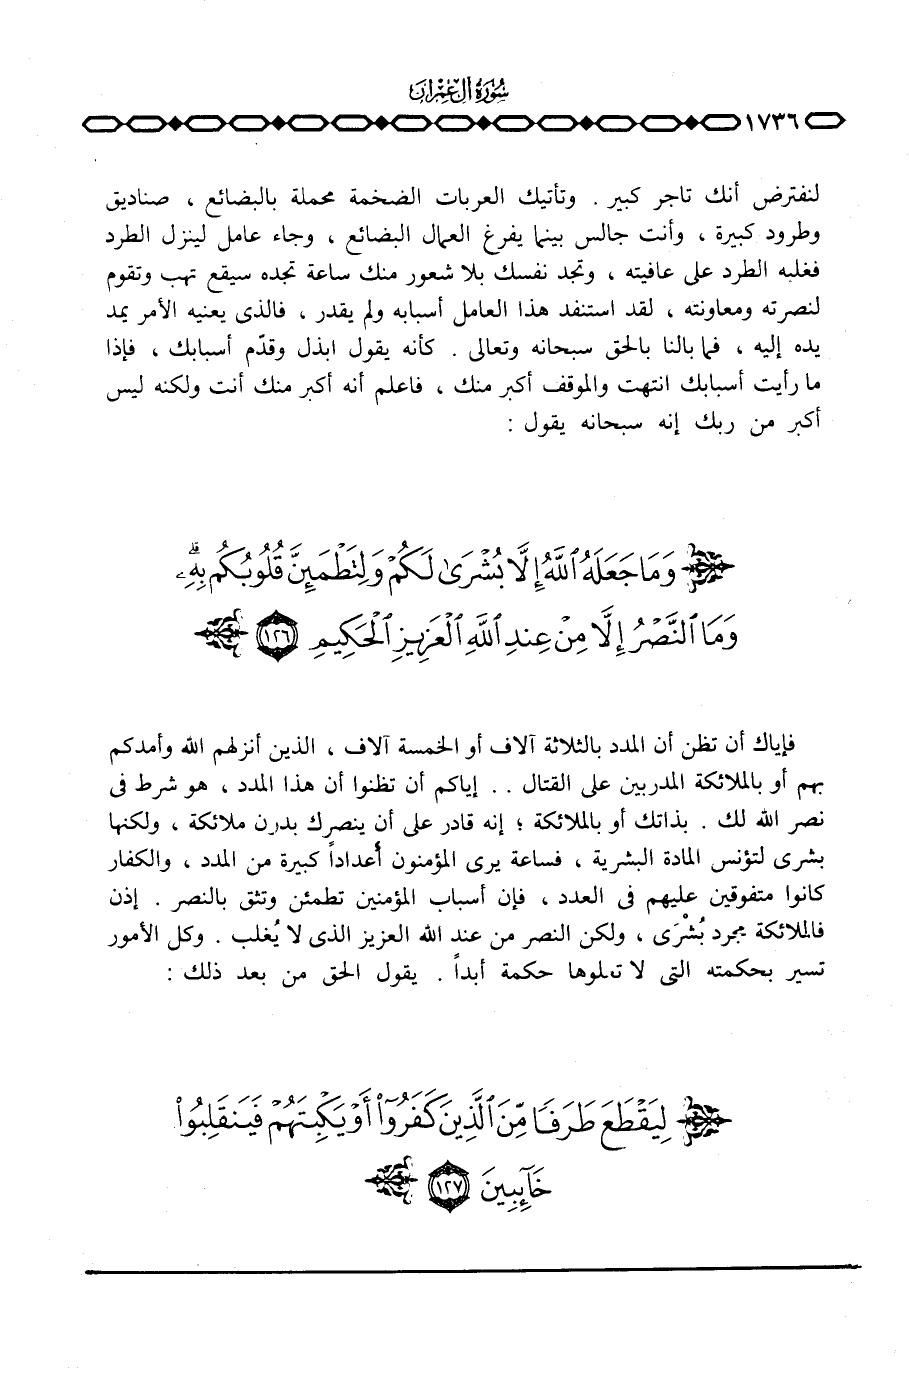 سُورَةُ آلِ عِمْرَانَ
١٧٣٦
لنفترض أنك تاجر كبير . وتأتيك العربات الضخمة محملة بالبضائع ، صناديق
وطرود كبيرة ، وأنت جالس بينما يفرغ العمال البضائع ، وجاء عامل لينزل الطرد
فغلبه الطرد على عافيته ، وتجد نفسك بلا شعور منك ساعة تجده سيقع تهب وتقوم
لنصرته ومعاونته ، لقد استنفد هذا العامل أسبابه ولم يقدر ، فالذى يعنيه الأمر يمد
يده إليه ، فما بالنا بالحق سبحانه وتعالى . كأنه يقول ابذل وقدّم أسبابك ، فإذا
ما رأيت أسبابك انتهت والموقف أكبر منك ، فاعلم أنه أكبر منك أنت ولكنه ليس
أكبر من ربك إنه سبحانه يقول :
وَمَا جَعَلَهُ ٱللَّهُ إِلَّا بُشْرَىٰ لَكُمْ وَلِتَطْمَئِنَّ قُلُوبُكُم بِهِۦۗ
وَمَا ٱلنَّصْرُ إِلَّا مِنْ عِندِ ٱللَّهِ ٱلْعَزِيزِ ٱلْحَكِيمِ ١٢٦
فإياك أن تظن أن المدد بالثلاثة آلاف أو الخمسة آلاف ، الذين أنزلهم الله وأمدكم
بهم أو بالملائكة المدربين على القتال .. إياكم أن تظنوا أن هذا المدد ، هو شرط فى
نصر الله لك . بذاتك أو بالملائكة ؛ إنه قادر على أن ينصرك بدرن ملائكة ، ولكنها
بشرى لتؤنس المادة البشرية ، فساعة يرى المؤمنون أعداداً كبيرة من المدد ، والكفار
كانوا متفوقين عليهم فى العدد ، فإن أسباب المؤمنين تطمئن وتثق بالنصر . إذن
فالملائكة مجرد بُشْرَى ، ولكن النصر من عند الله العزيز الذى لا يُغلب . وكل الأمور
تسير بحكمته التى لا تعلوها حكمة أبداً . يقول الحق من بعد ذلك :
لِيَقْطَعَ طَرَفًا مِّنَ ٱلَّذِينَ كَفَرُوٓا۟ أَوْ يَكْبِتَهُمْ فَيَنقَلِبُوا۟
خَآئِبِينَ ١٢٧